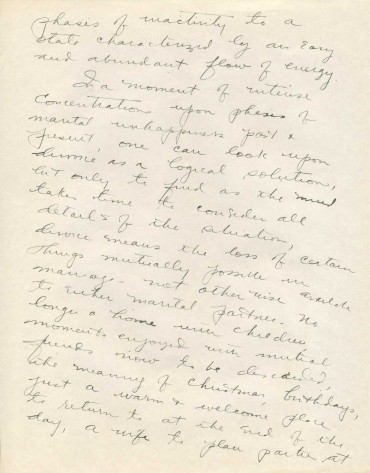 phases of inactivity to a
state characterized by an easy
and abundant flow of energy.
In a moment of intense
concentrations upon phases of
marital unhappiness past &
present, one can look upon
divorce as a logical solution,
but only to find as the mind
takes time to consider all
details of the situation,
divorce means the loss of certain
things mutually possible in
marriage not otherwise available
to either marital partner. No
longer a home with children
moments enjoyed with mutual
friends now to be discarded,
the meaning of Christmas, birthdays,
just a warm & welcome place
to return to at the end of the
day, a wife to plan parties at